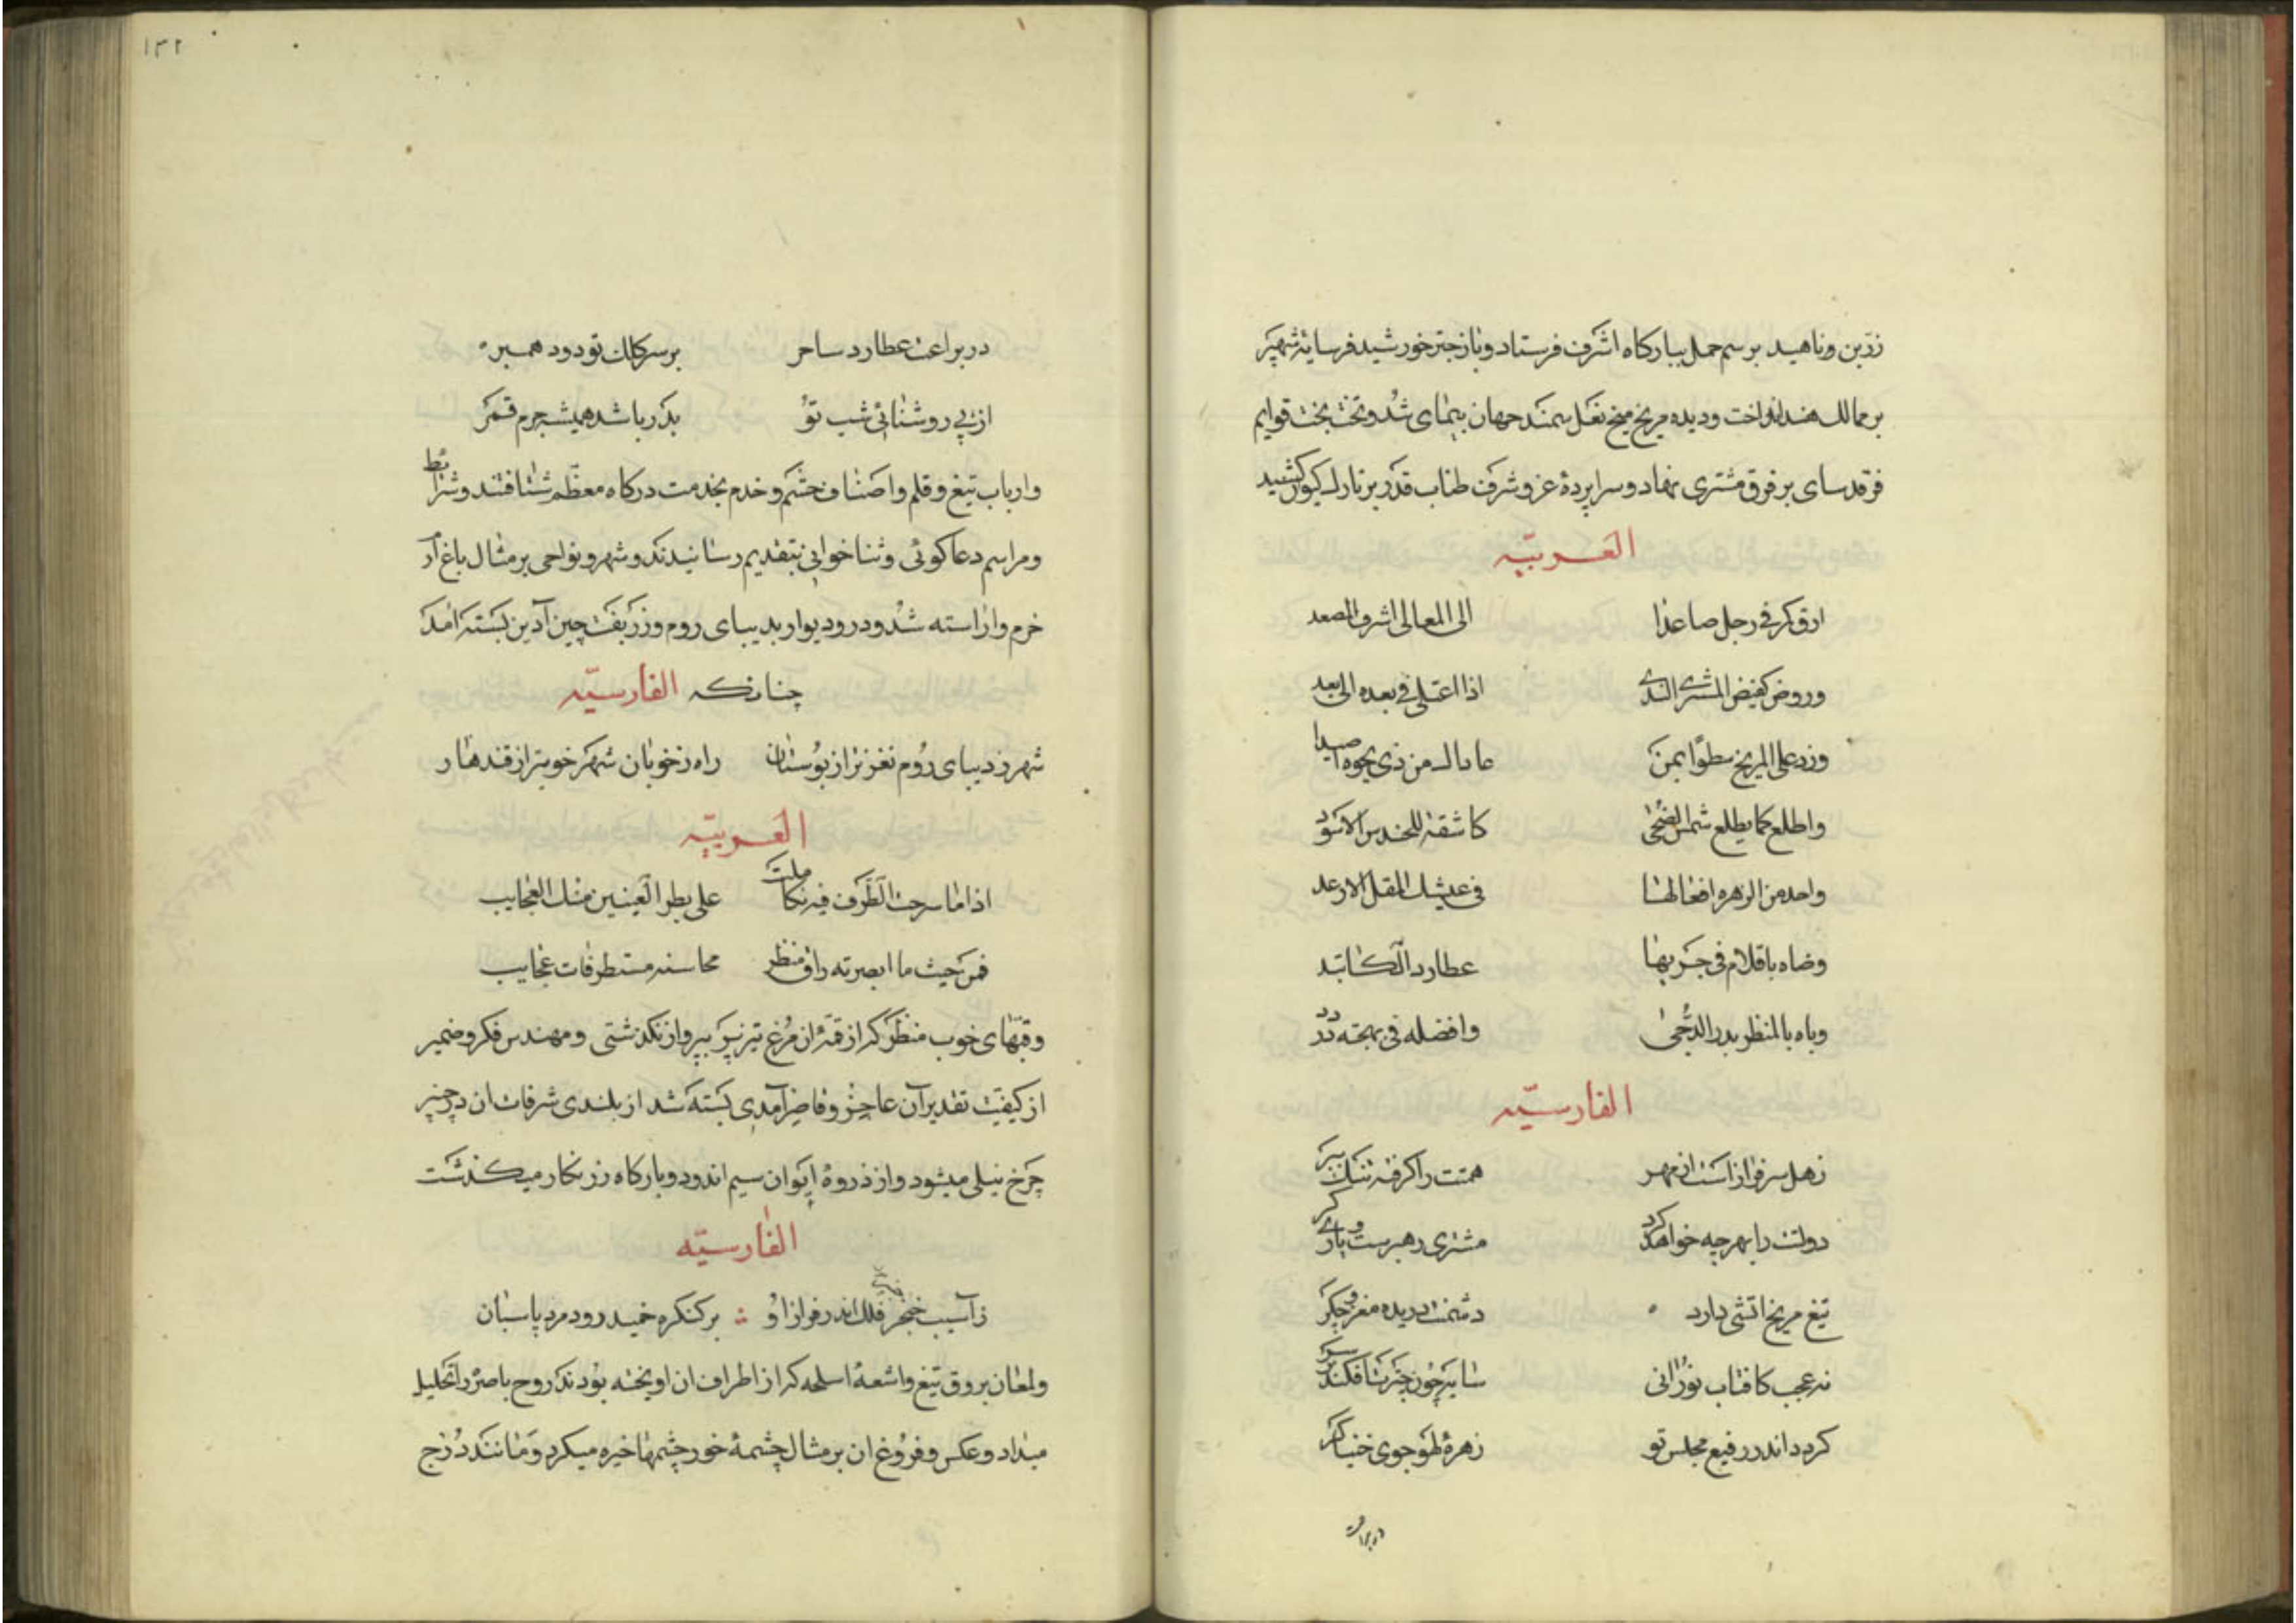 زرین وناهید برسم حمل ببارکاه اشرف فرستاد وباز چتر خورشید فرسایه شهپر
بر ممالک هند انداخت ودیده مریخ میخ نعل سمند جهان پیمای شد وتخت بخت قوایم
فرقدسای بر فرق مشتری نهاد وسراپرده عز وشرف طناب قدر بر تارک کیوان کشید
العربیّه
ارق کر فی رجل صاعدا الی المعالی اشرف المصعد
وروض کفیض المشتری الندی اذا اعتلی فی بعده الابعد
وزد علی المریخ سطوًا بمن من ذی نجوه اصیدا
واطلع کما یطلع شمس الضّحی کاشفة للحندس الاسود
من الزهره افعالها فی عیشک المقل الارغد
وضاه باقلام فی جریها عطارد الکاتبد
وباه بالمنظر بدر الدّجی وافضله فی بهجته
الفارسیّه
زحل سرفراز است از مهر همتت را کرفته تنک ببر
دولتت را بهرچه خواهد کرد مشتری رهبرست ویاری کر
تیغ مریخ اتشی دارد دشمنت دریده مغز وجکر
نه عجب کافتاب نورانی سایه چون چترت افکند بر سر
کردد اندر رفیع مجلس تو زهرهٔ لهو جوی خنیاکر
در براعت
۱۳۲
در براعت عطارد ساحر بر سر کلک تو دود همبر
از پی روشنائی شب تو بدر باشد همیشه جرم قمر
وارباب تیغ وقلم واصناف حشم وخدم بخدمت درکاه معظّم شتافتند وشرائط
ومراسم دعا کوئی وثنا خوانی بتقدیم رسانیدند وشهر ونواحی بر مثال باغ ارَم
خرم واراسته شد ودر ودیوار بدیبای روم وزربفت چین آدین بسته امد
چنانکه الفارسیّه
شهر ز دیبای روم نغزتر از بوستان راه ز خوبان شهر خوبتر از قندهار
العربیّه
اذا ما سرحت الطّرف فیه تکاملت علی بطر العینین مثل العجایب
فمن حیث ما ابصرته راق منظر محاسنه مستطرفات عجایب
وقبّهای خوب منظر که از قمّهٔ ان مرغ تیز پر بپرواز نکذشتی ومهندس فکر وضمیر
از کیفیّت تقدیر آن عاجز وقاصر آمدی بسته شد از بلندی شرفات ان در چنبر
چرخ نیلی میشود واز ذروهٔ ایوان سیم اندود وبارکاه زرنکار میکذشت
الفارسیّه
ز آسیب خنجر فلک اندر فراز او بر کنکره خمید رود مرد پاسبان
ولمعان بروق تیغ واشعهٔ اسلحه که از اطراف ان اویخته بودند روح باصره را تحلیل
میداد وعکس وفروغ ان بر مثال چشمهٔ خور چشمها خیره میکرد ومانند درج